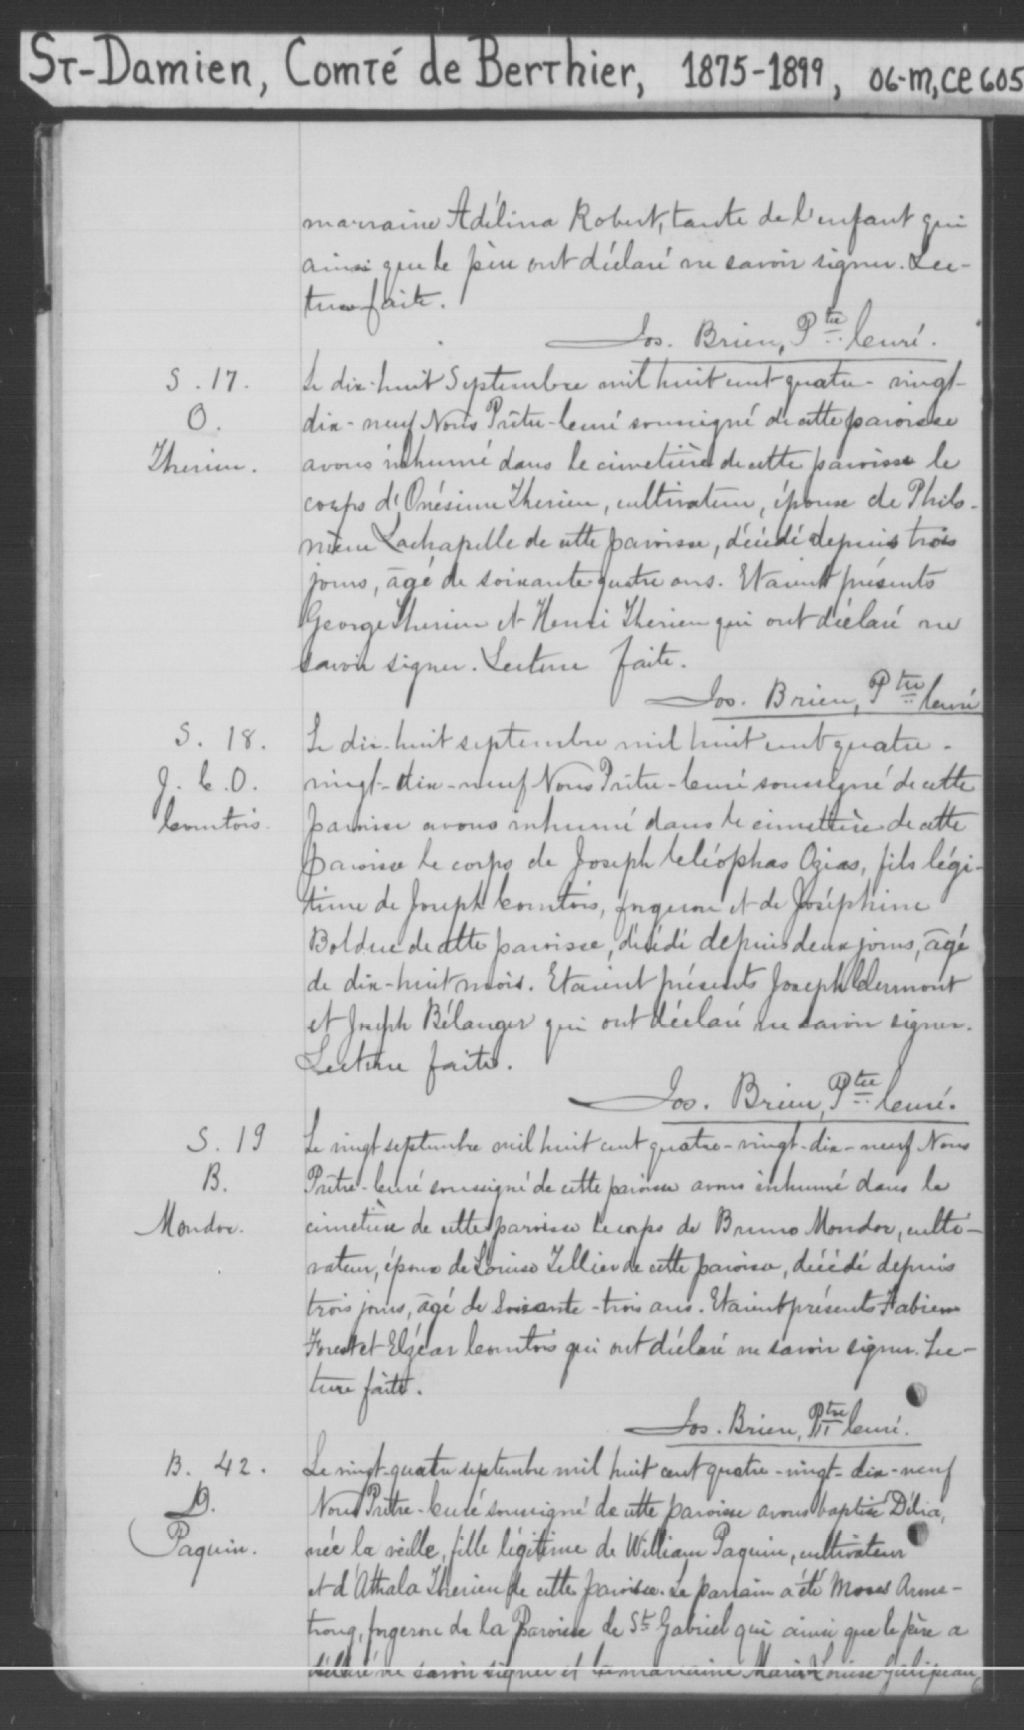 St-Damien, Comté de Berthier, 1875-1899, 06-M,CE605
marraine Adélina Robert, tante de l'enfant qui
ainsi que le père ont déclaré ne savoir signer. Lec-
ture faite.
Jos. Brien, Ptre Curé.
S. 17.
O.
Therien.
Le dix-huit Septembre mil huit cent quatre-vingt-
dix-neuf Nous Prêtre-Curé soussigné de cette paroisse
avons inhumé dans le cimetière de cette paroisse le
corps d'Onésime Therien, cultivateur, époux de Philo-
mène Lachapelle de cette paroisse, décédé depuis trois
jours, âgé de soixante-quatre ans. Etaient présents
George Therien et Henri Therien qui ont déclaré ne
savoir signer. Lecture faite.
Jos. Brien, Ptre Curé
S. 18.
J. C. O.
Comtois.
Le dix-huit septembre mil huit cent quatre-
vingt-dix-neuf Nous Prêtre-Curé soussigné de cette
paroisse avons inhumé dans le cimetière de cette
paroisse le corps de Joseph Cléophas Ozias, fils légi-
time de Joseph Comtois, forgeron et de Joséphine
Bolduc de cette paroisse, décédé depuis deux jours, âgé
de dix-huit mois. Etaient présents Joseph Clermont
et Joseph Bélanger qui ont déclaré ne savoir signer.
Lecture faite.
Jos. Brien, Ptre Curé.
S. 19
B.
Mondor.
Le vingt septembre mil huit cent quatre-vingt-dix-neuf Nous
Prêtre-Curé soussigné de cette paroisse avons inhumé dans le
cimetière de cette paroisse le corps de Bruno Mondor, culti-
vateur, époux de Louise Tellier de cette paroisse, décédé depuis
trois jours, âgé de soixante-trois ans. Etaient présents Fabien
Forest et Elzéar Comtois qui ont déclaré ne savoir signer. Lec-
ture faite.
Jos. Brien, Ptre Curé.
B. 42.
D.
Paquin.
Le vingt-quatre septembre mil huit cent quatre-vingt-dix-neuf
Nous Prêtre-Curé soussigné de cette paroisse avons baptisé Délia,
née la veille, fille légitime de William Paquin, cultivateur
et d'Athala Therien de cette paroisse. Le parrain a été Moses Arms-
trong, forgeron de la Paroisse de St Gabriel qui ainsi que le père a
déclaré ne savoir signer et la marraine Marie Louise Galipeau,